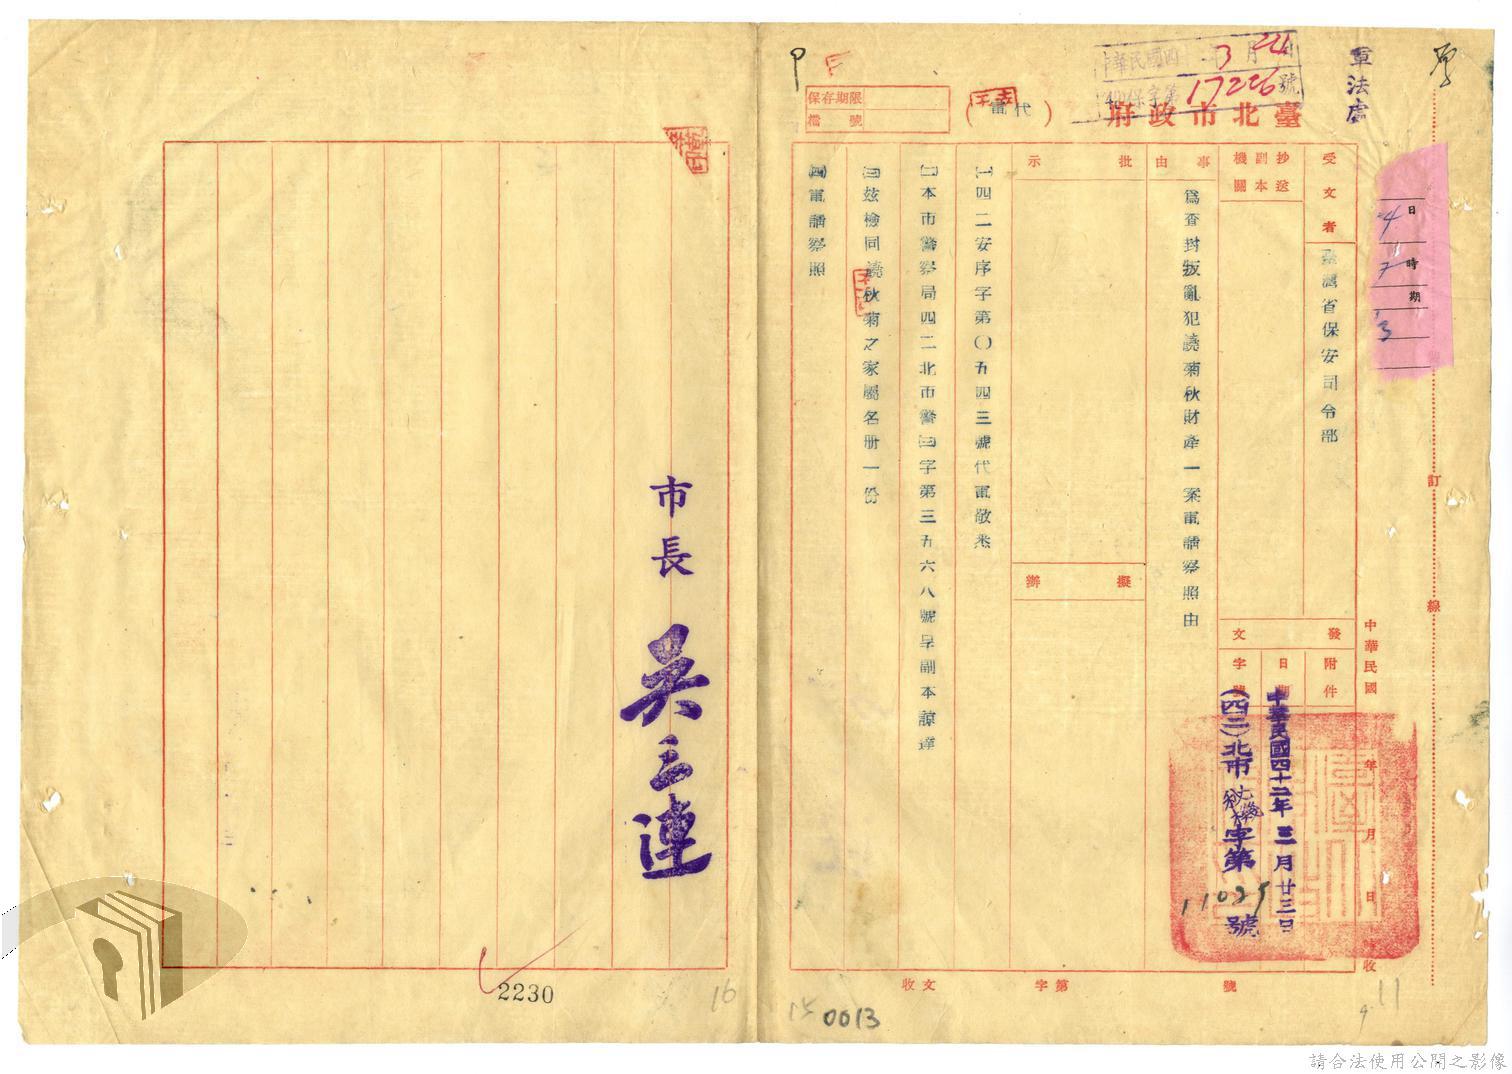 軍法處
中華民國四 年3月24日
保字第17226號
臺北市政府
(代電)
保存期限
檔號
日
時
期
4
7
3
受文者
臺灣省保安司令部
抄送副本機關
事由
為查封叛亂犯譊菊秋財產一案電請察照由
批示
擬辦
發文
附件
日期
中華民國四十二年三月廿三日
字號
(四二)北市秘機字第11029號
㈠四二安序字第〇五四三號代電敬悉
㈡本市警察局四二北市警㈢字第三五六八號呈副本諒達
㈢玆檢同譊秋菊之家屬名册一份
㈣電請察照
市長 吳三連
中華民國 年 月 日 時收
訂
線
收文 字第 號
2230
16
15
0013
11
請合法使用公開之影像